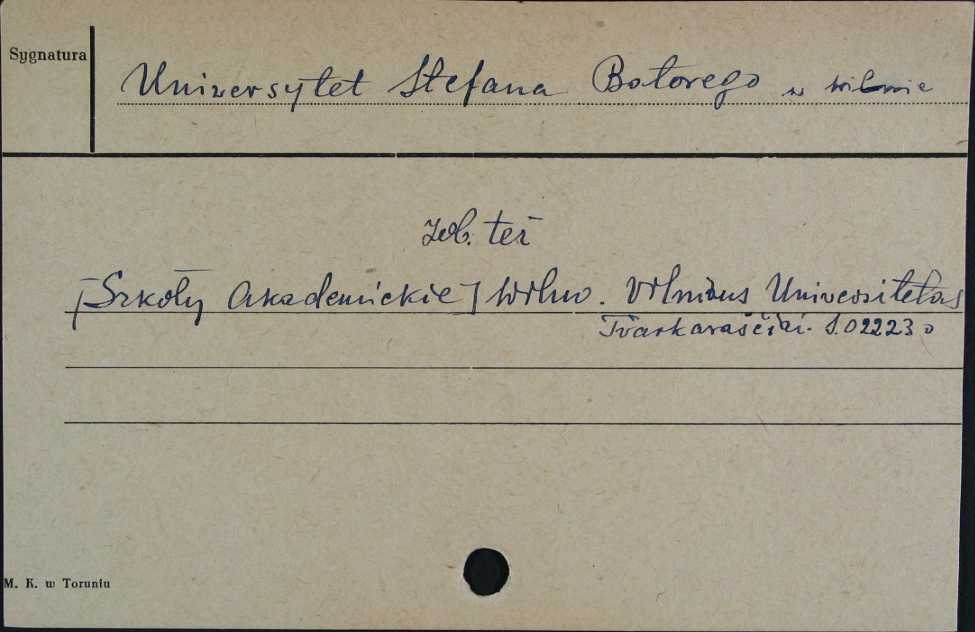 Sygnatura
Uniwersytet Stefana Batorego w Wilnie
zob. też
[Szkoły Akademickie] Wilno. Vilniaus Universitetas
Tvarkaraščiai. S.022230
M. K. w Toruniu